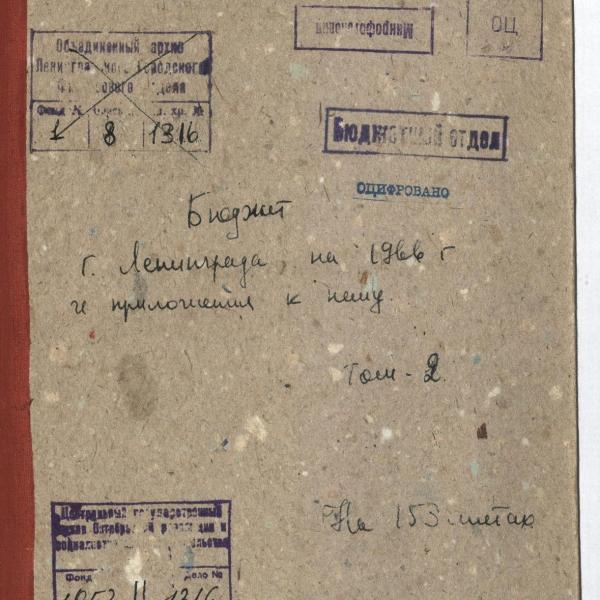 Объединенный архив
Ленинградского Городского
Финансового отдела
Фонд № Опись ед. хр. №
1 8 1316
Микрофотокопия
ОЦ
Бюджетный отдел
ОЦИФРОВАНО
Бюджет
г. Ленинграда на 1966 г
и приложения к нему.
Том - 2.
На 153 листах
Центральный государственный
архив Октябрьской революции и
социалистического
Фонд Дело №
1853 11 1316